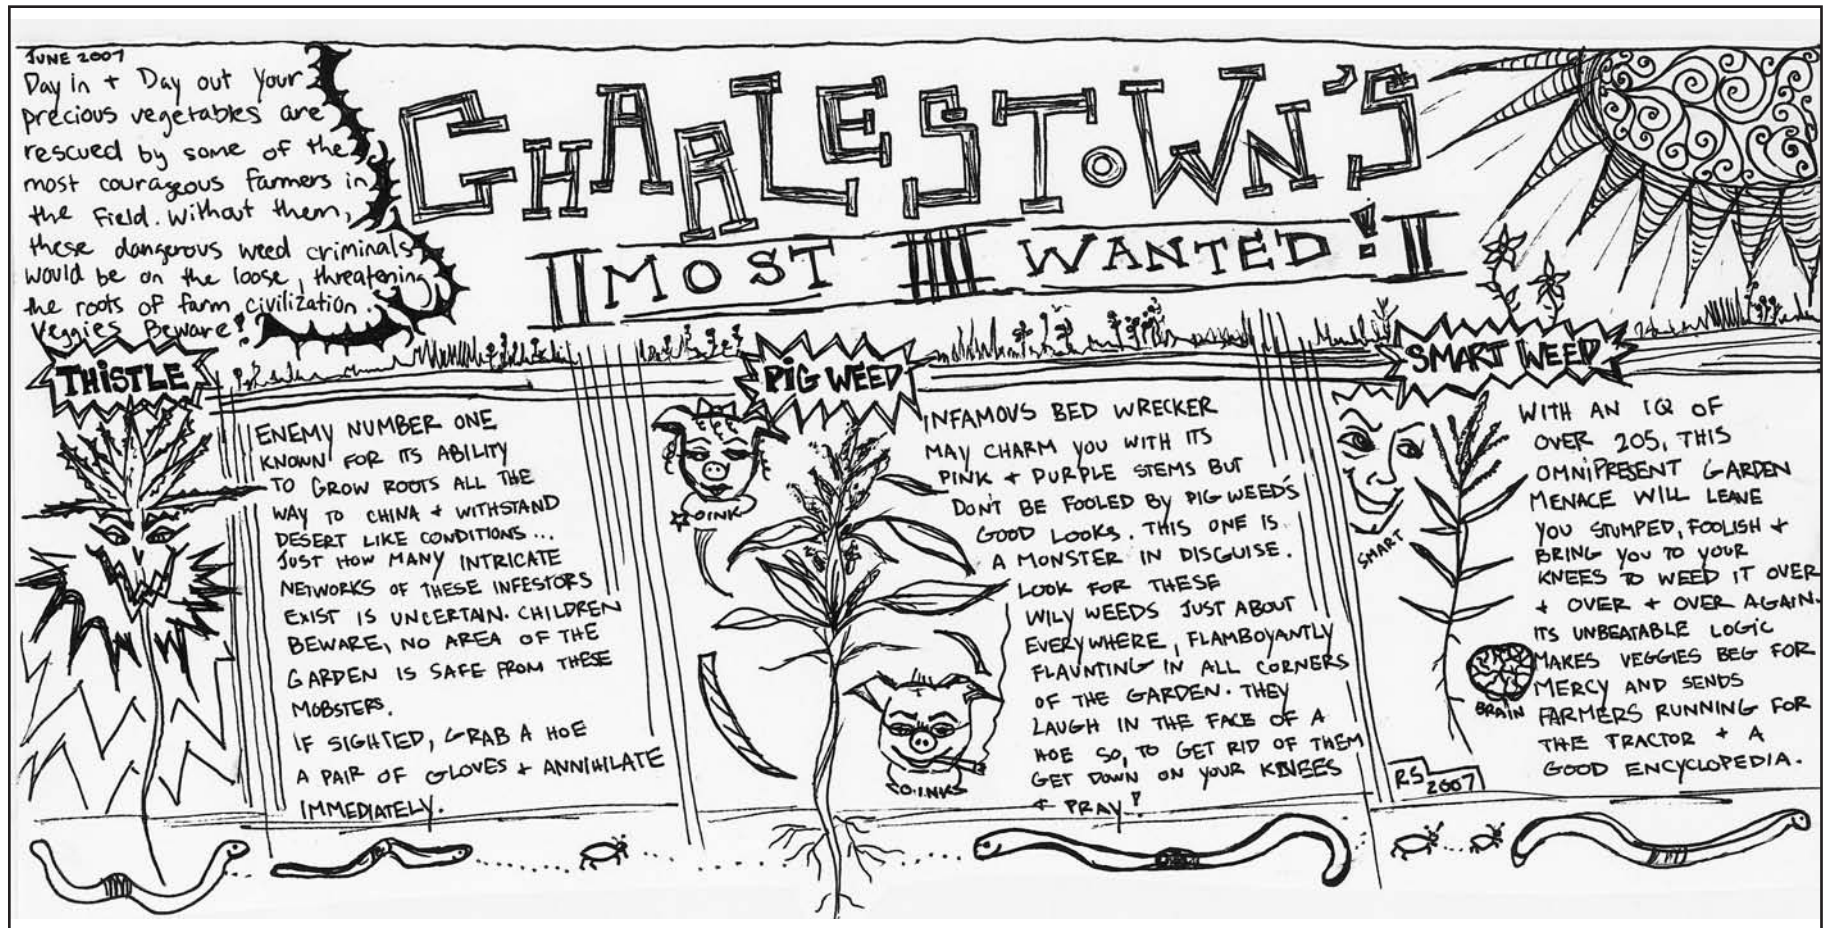 JUNE 2007
Day in + Day out your
precious vegetables are
rescued by some of the
most courageous farmers in
the field. Without them,
these dangerous weed criminals
would be on the loose, threatening
the roots of farm civilization.
Veggies Beware!
CHARLESTOWN'S
MOST WANTED!
THISTLE
ENEMY NUMBER ONE
KNOWN FOR ITS ABILITY
TO GROW ROOTS ALL THE
WAY TO CHINA + WITHSTAND
DESERT LIKE CONDITIONS...
JUST HOW MANY INTRICATE
NETWORKS OF THESE INFESTORS
EXIST IS UNCERTAIN. CHILDREN
BEWARE, NO AREA OF THE
GARDEN IS SAFE FROM THESE
MOBSTERS.
IF SIGHTED, GRAB A HOE
A PAIR OF GLOVES + ANNIHILATE
IMMEDIATELY.
PIG WEED
OINK
INFAMOUS BED WRECKER
MAY CHARM YOU WITH ITS
PINK + PURPLE STEMS BUT
DON'T BE FOOLED BY PIG WEED'S
GOOD LOOKS. THIS ONE IS
A MONSTER IN DISGUISE.
LOOK FOR THESE
WILY WEEDS JUST ABOUT
EVERYWHERE, FLAMBOYANTLY
FLAUNTING IN ALL CORNERS
OF THE GARDEN. THEY
LAUGH IN THE FACE OF A
HOE SO, TO GET RID OF THEM
GET DOWN ON YOUR KNEES
+ PRAY!
SMART WEED
SMART
BRAIN
WITH AN IQ OF
OVER 205, THIS
OMNIPRESENT GARDEN
MENACE WILL LEAVE
YOU STUMPED, FOOLISH +
BRING YOU TO YOUR
KNEES TO WEED IT OVER
+ OVER + OVER AGAIN.
ITS UNBEATABLE LOGIC
MAKES VEGGIES BEG FOR
MERCY AND SENDS
FARMERS RUNNING FOR
THE TRACTOR + A
GOOD ENCYCLOPEDIA.
RS 2007